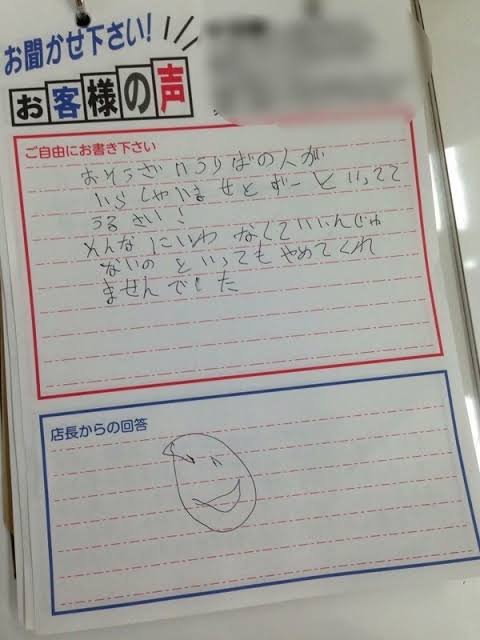 お聞かせ下さい!
お客様の声
ご自由にお書き下さい
おそうざいうりばの人が
いらしゃいませとずーといってて
うるさい!
そんなにいわなくていいんじゃ
ないのといってもやめてくれ
ませんでした
店長からの回答